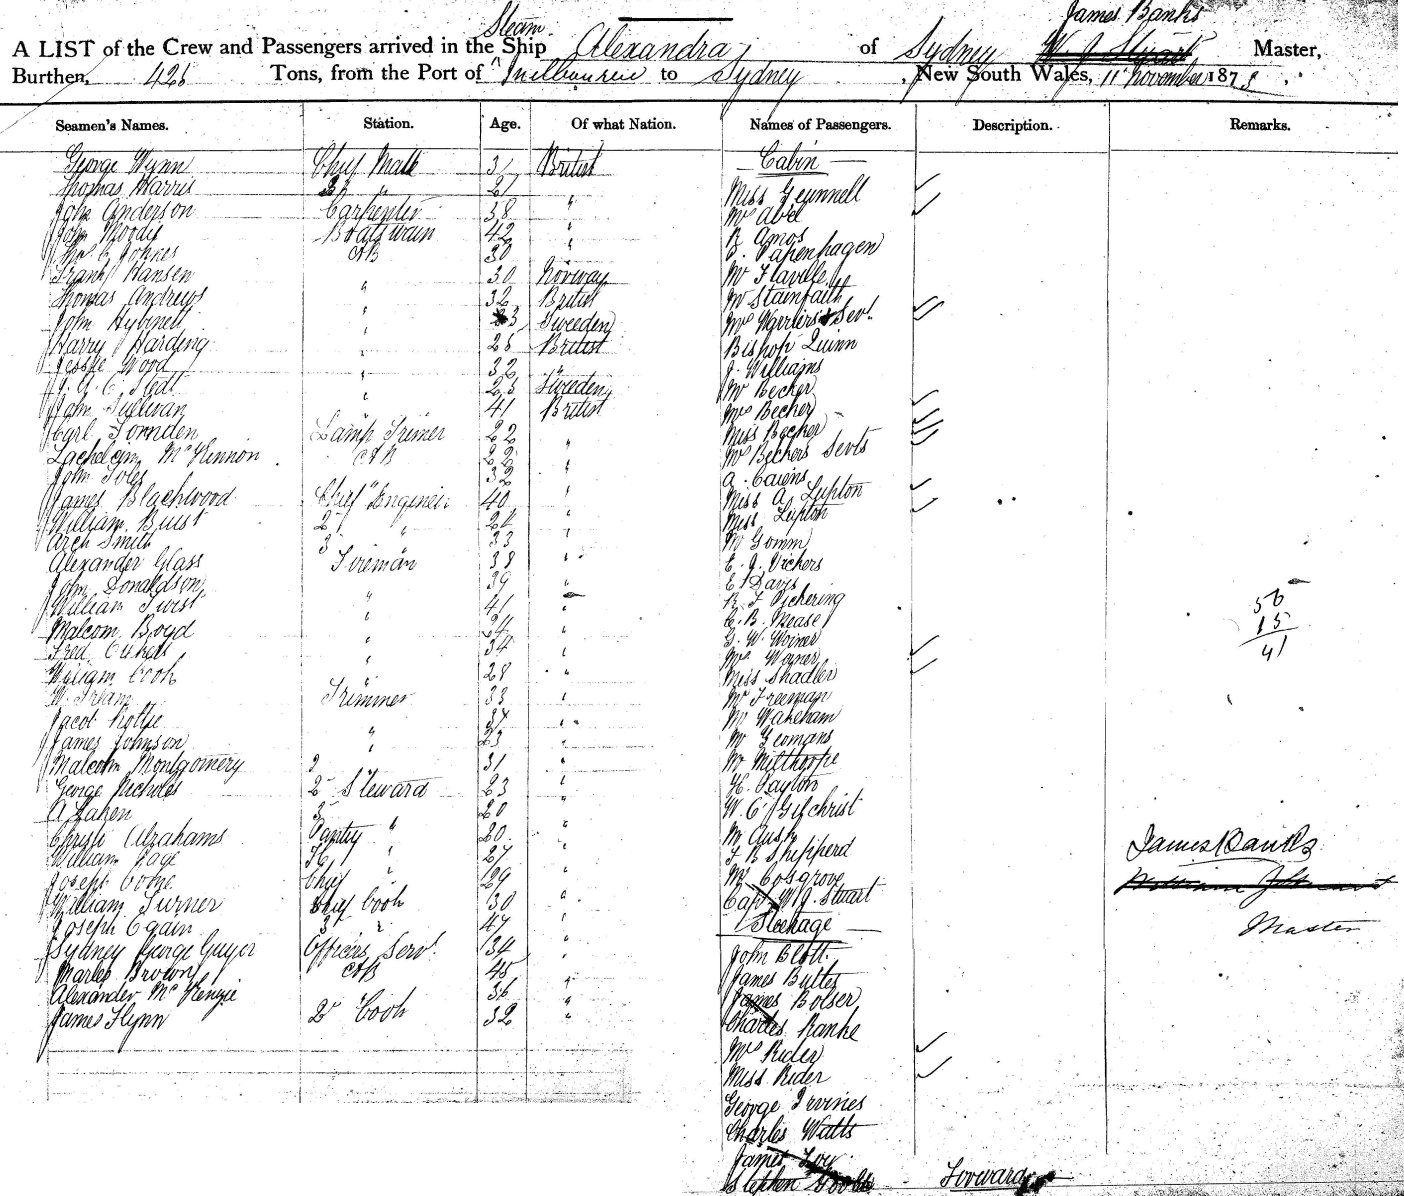 James Banks
Steam
A LIST of the Crew and Passengers arrived in the Ship Alexandra of Sydney W. J. Stuart Master,
Burthen, 425 Tons, from the Port of Melbourne to Sydney, New South Wales, 11 November 1878
Seamen's Names. Station. Age. Of what Nation. Names of Passengers. Description. Remarks.
George Wynn Chief Mate 31 British
Thomas Harris 2d " 21
John Anderson Carpenter 38 "
John Moodie Boatswain 42 "
Thos. C. Johnes AB 30 "
Frank Hansen " 30 Norway
Thomas Andrews 32 British
John Hybinett " 23 Sweden
Harry Harding 28 British
Jessie Wood 32 "
Stedt 23 Sweden
John Sullivan " 41 British
Cyrl Tornden Lamp Trimer 22 "
McKinnon AB 22 "
John Toles 32 "
James Blackwood Chief Engineer 40 "
William Buist 2d "
Arch Smith 3 " 33 "
Alexander Glass Fireman 38 "
John Donaldson 39 "
William Twist " 41 "
Malcom Boyd "
Fred " 34 "
William Cook " 28 "
W. Tream Trimmer 33 "
Jacob Rolfe "
James Johnson " 23 "
Malcolm Montgomery 31 "
George Nicholes 2d Steward 23 "
A Haken 3 20 "
Christi Abrahams Pantry " 20 "
William Page " 27 "
Joseph Cobne Chief " 29 "
William Turner Chief Cook 30 "
Joseph Egain 3d " 47 "
Sydney George Guyer Officers Servt. 34 "
Charles Brown AB 45
Alexander McKenzie " 36 "
James Flynn 2d Cook 32 "
Cabin
Miss Gunnell
Mrs Abel
R. Amos
Papenhagen
Mr Flavelle
Mr Stainfaith
Mrs & Servt.
Bishop Quinn
J. Williams
Mr Becker
Mrs Becker
Miss Becker
Mrs Beckers Servts
A. Cairns
Miss A. Lupton
Miss Lupton
Mr Gomm
E. J. Vickers
E. Davis
R. F. Pickering
C. B. Mease
G. W. Woiner
Mrs Woiner
Miss Shadler
Mr Freeman
Mr Wakeham
Mr Yeomans
Mr Milthorpe
H. Tayton
W. C. Gilchrist
Mr Aush
F B Shepperd
Mr Cosgrove
Cap. W. J. Stuart
Steerage
John Blott
James Buttes
James Bolser
Charles Ranke
Mrs Rider
Miss Rider
George Irvines
Charles Watts
James
Stephen Forward
56
15
41
James Banks
Master